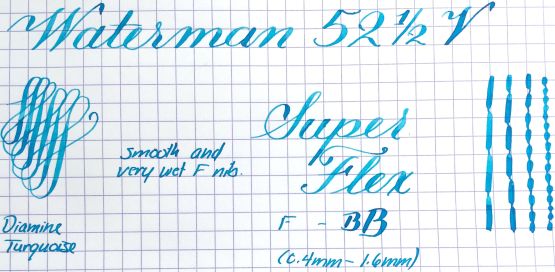 Waterman 52 ½ V
Super
Flex
smooth and
very wet F nib.
F - BB
Diamine
Turquoise
(0.4mm - 1.6mm)